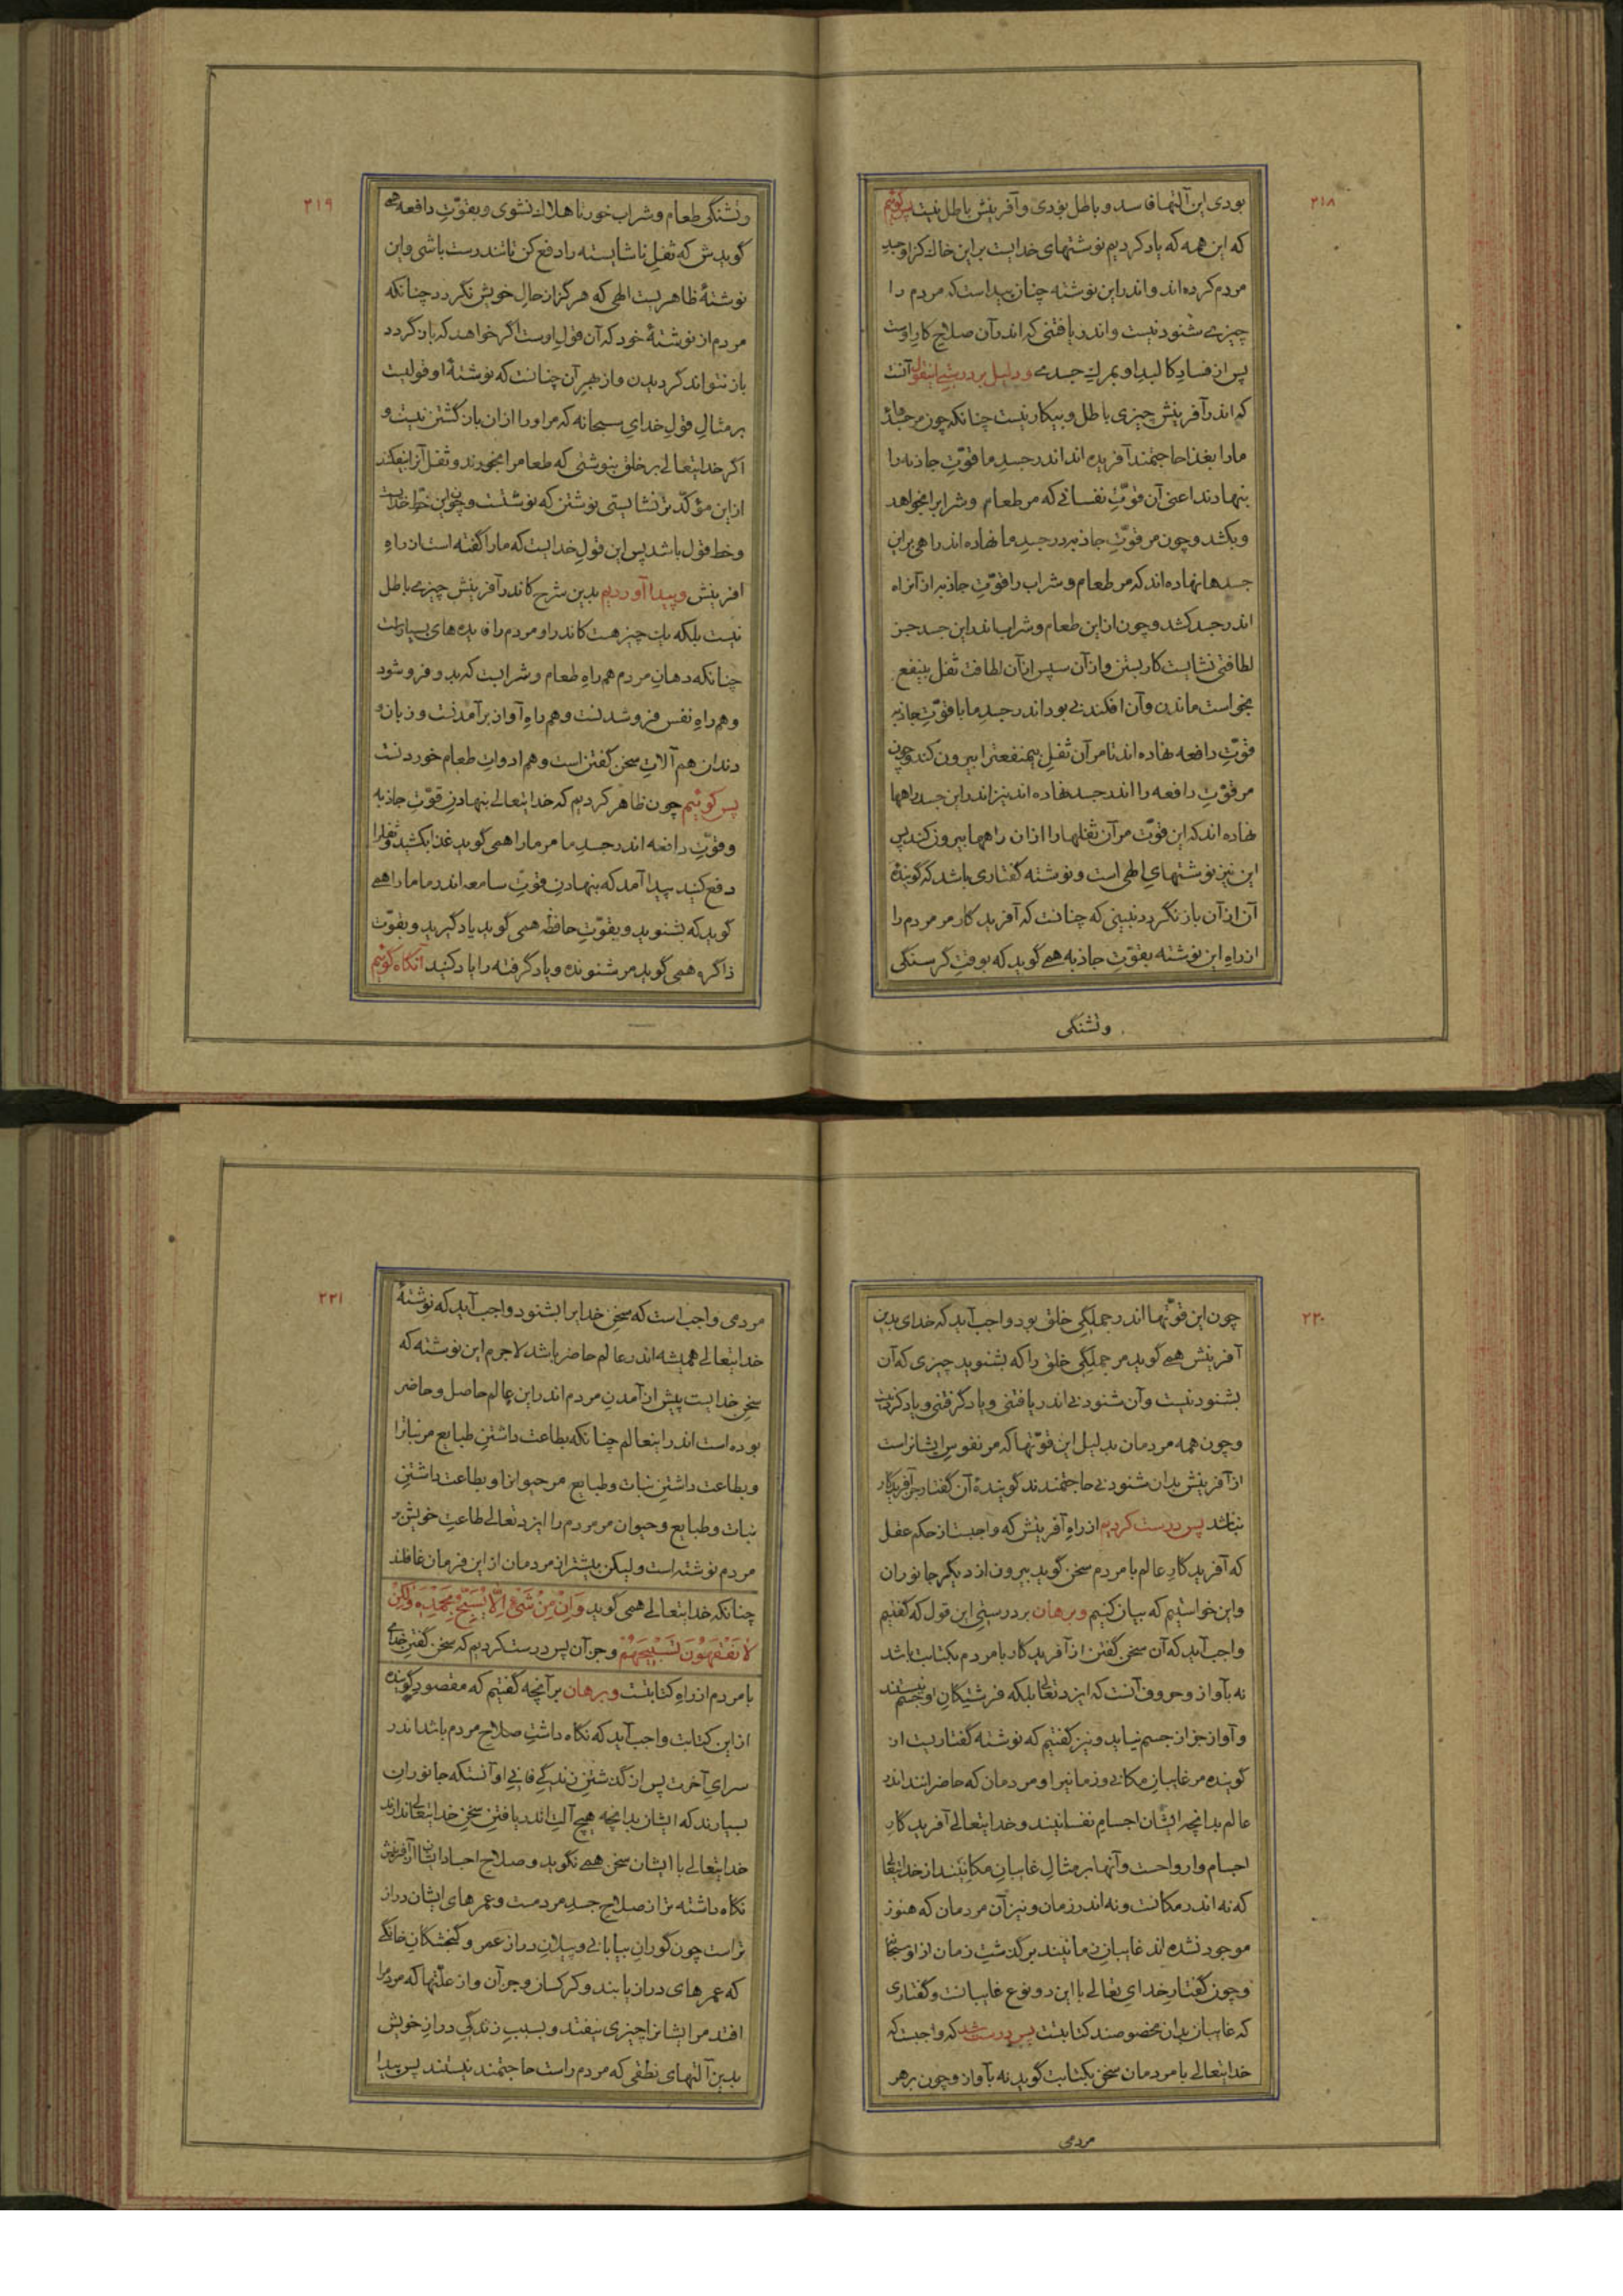 ۲۱۸
بودی این آلتها فاسد و باطل بودی و آفرینش باطل نیست پس گوئیم
که این همه که یاد کردیم نوشتهای خدایست برین خاك کزو جسد
مردم کرده اند و اندر این نوشته چنان پیداست که مردم را
چیزی شنودنیست و اندر یافتنی که اندر آن صلاح کار اوست
پس از فساد کالبد او بمرگ جسدی و دلیل بر درستی اینقول آنست
که اندر آفرینش چیزی باطل و بیکار نیست چنانکه چون مر جسد
ما را بغذا حاجتمند آفریده اند اندر جسدِ ما قوّتِ جاذبه را
بنهادند اعنی آن قوّتِ نفسانی که مر طعام و شراب را بخواهد
و بکشد و چون مر قوّتِ جاذبه در جسدِ ما نهاده اند راهی براین
جسدها نهاده اند که مر طعام و شراب را قوّتِ جاذبه از آن راه
اندر جسد کشد و چون از این طعام و شراب اندر این جسد جز
لطافتی نشایست کار بستن و از آن سپس از آن لطافت ثفل بینفع
بخواست ماندن و آن افکندنی بود اندر جسدِ ما با قوّتِ جاذبه
قوّتِ دافعه نهاده اند تا مر آن ثفلِ بیمنفعت را بیرون کند و چون
مر قوّتِ دافعه را اندر جسد نهاده اند نیز اندر این جسد راهها
نهاده اند که این قوّت مر آن ثفلها را از ان راهها بیرون کند پس
این نیز نوشتهایِ الهی است و نوشته گفتاری باشد که گویندهٔ
آن از آن باز نگردد نبینی که چنانست که آفریدگار مر مردم را
از راهِ این نوشته بقوّتِ جاذبه همی گوید که بوقتِ گرسنگی
وتشنگی
۲۱۹
وتشنگی طعام و شراب خور تا هلاك نشوی و بقوّتِ دافعه همی
گویدش که ثفلِ ناشایسته را دفع کن تا تندرست باشی و این
نوشتهٔ ظاهریست الهی که هرگز از حالِ خویش نگردد چنانکه
مردم از نوشتهٔ خود که آن قولِ اوست اگر خواهد که باز گردد
باز نتواند گردیدن و از بهرِ آن چنانست که نوشتهٔ او قولیست
بر مثالِ قولِ خدایِ سبحانه که مر او را از ان باز گشتن نیست و
اگر خدایتعالی بر خلق بنوشتی که طعام را بخورند و ثفل آنرا بیفکند
از این مؤکّدتر نشایستی نوشتن که نوشتست و چون این خطِ خدایست
و خط قول باشد پس این قولِ خدایست که ما را گفته است از راهِ
افرینش و پیدا آوردیم بدین شرح کاندر آفرینش چیزی باطل
نیست بلکه یك چیز هست کاندر او مردم را فایده های بسیارست
چنانکه دهانِ مردم هم راهِ طعام و شرابست که بدو فرو شود
و هم راهِ نفس فرو شدنست و هم راهِ آواز برآمدنست و زبان و
دندان هم آلاتِ سخن گفتن است و هم ادواتِ طعام خوردنست
پس گوئیم چون ظاهر کردیم که خدایتعالی بنهادنِ قوّتِ جاذبه
و قوّتِ دافعه اندر جسدِ ما مر ما را همی گوید غذا بکشید و ثفل را
دفع کنید پیدا آمد که بنهادنِ قوّتِ سامعه اندر ما ما را همی
گوید که بشنوید و بقوّتِ حافظه همی گوید یاد گیرید و بقوّت
ذاکره همی گوید مر شنونده و یاد گرفته را یاد کنید آنگاه گوئیم
۲۲۰
چون این قوّتها اندر جملگیِ خلق بود واجب آید که خدای بدین
آفرینش همی گوید مر جملگیِ خلق را که بشنوید چیزی که آن
بشنودنیست و آن شنودنی اندر یافتنی و یاد گرفتنی و یاد کردنیست
و چون همه مردمان بدلیل این قوّتها که مر نفوسِ ایشانراست
از آفرینش بدان شنودنی حاجتمندند گویندهٔ آن گفتار جز آفریدگار
نباشد پس درست کردیم از راهِ آفرینش که واجبست از حکم عقل
که آفریدگارِ عالم با مردم سخن گوید بیرون از دیگر جانوران
و این خواستیم که بیان کنیم و برهان بر درستیِ این قول که گفتیم
واجب آید که آن سخن گفتن از آفریدگار با مردم بکتابت باشد
نه بآواز و حروف آنست که ایزد تعالی بلکه فرشتگانِ او جسم نیستند
و آواز جز از جسم نیاید و نیز گفتیم که نوشته گفتاریست از
گوینده مر غایبانِ مکانی و زمانی را و مردمان که حاضرانند اندر
عالم بدانچه ایشان اجسامِ نفسانیند و خدایتعالی آفریدگارِ
اجسام و ارواحست و آنها بر مثالِ غایبانِ مکانیند از خدایتعالی
که نه اندر مکانست و نه اندر زمان و نیز آن مردمان که هنوز
موجود نشده اند غایبانِ زمانیند برگذشتِ زمان از او سبحانه
و چون گفتارِ خدایِ تعالی با این دو نوع غایبانست و گفتاری
که غایبان بدان مخصوصند کتابتست پس درست شد که واجبست که
خدایتعالی با مردمان سخن بکتابت گوید نه بآواز و چون بر هر
مردمی
۲۲۱
مردمی واجب است که سخنِ خدایرا بشنود واجب آید که نوشتهٔ
خدایتعالی همیشه اندر عالم حاضر باشد لاجرم این نوشته که
سخنِ خدایست پیش از آمدنِ مردم اندر این عالم حاصل و حاضر
بوده است اندر اینعالم چنانکه بطاعت داشتنِ طبایع مر نباترا
و بطاعت داشتنِ نبات و طبایع مر حیوانرا و بطاعت داشتنِ
نبات و طبایع و حیوان مر مردم را ایزد تعالی طاعتِ خویش بر
مردم نوشته است و لیکن بیشتر از مردمان از این فرمان غافلند
چنانکه خدایتعالی همی گوید وَاِنْ مِنْ شَیْءٍ اِلّا یُسَبِّحُ بِحَمْدِهِ وَلٰکِنْ
لا تَفْقَهُونَ تَسْبِیحَهُمْ و جز آن پس درست کردیم که سخن گفتنِ خدای
با مردم از راهِ کتابتست و برهان بر آنچه گفتیم که مقصودِ گوینده
از این کتابت واجب آید که نگاه داشتِ صلاحِ مردم باشد اندر
سرایِ آخرت پس از گذشتنِ زندگیِ فانیِ او آنستکه جانوران
بسیارند که ایشان بدانچه هیچ آلتِ اندر یافتنِ سخنِ خدایتعالی ندارند
خدایتعالی با ایشان سخن همی نگوید و صلاحِ اجسادِ ایشان از آفرینش
نگاه داشته تر از صلاحِ جسدِ مردمست و عمرهای ایشان دراز
تر است چون گورانِ بیابانی و پیلانِ دراز عمر و گنجشکانِ خانگی
که عمرهای دراز یابند و کرکسان و جز آن و از علّتها که مردم را
افتد مر ایشانرا چیزی نیفتد و بسببِ زندگیِ درازِ خویش
بدین آلتهای نطقی که مردم راست حاجتمند نیستند پس پیدا